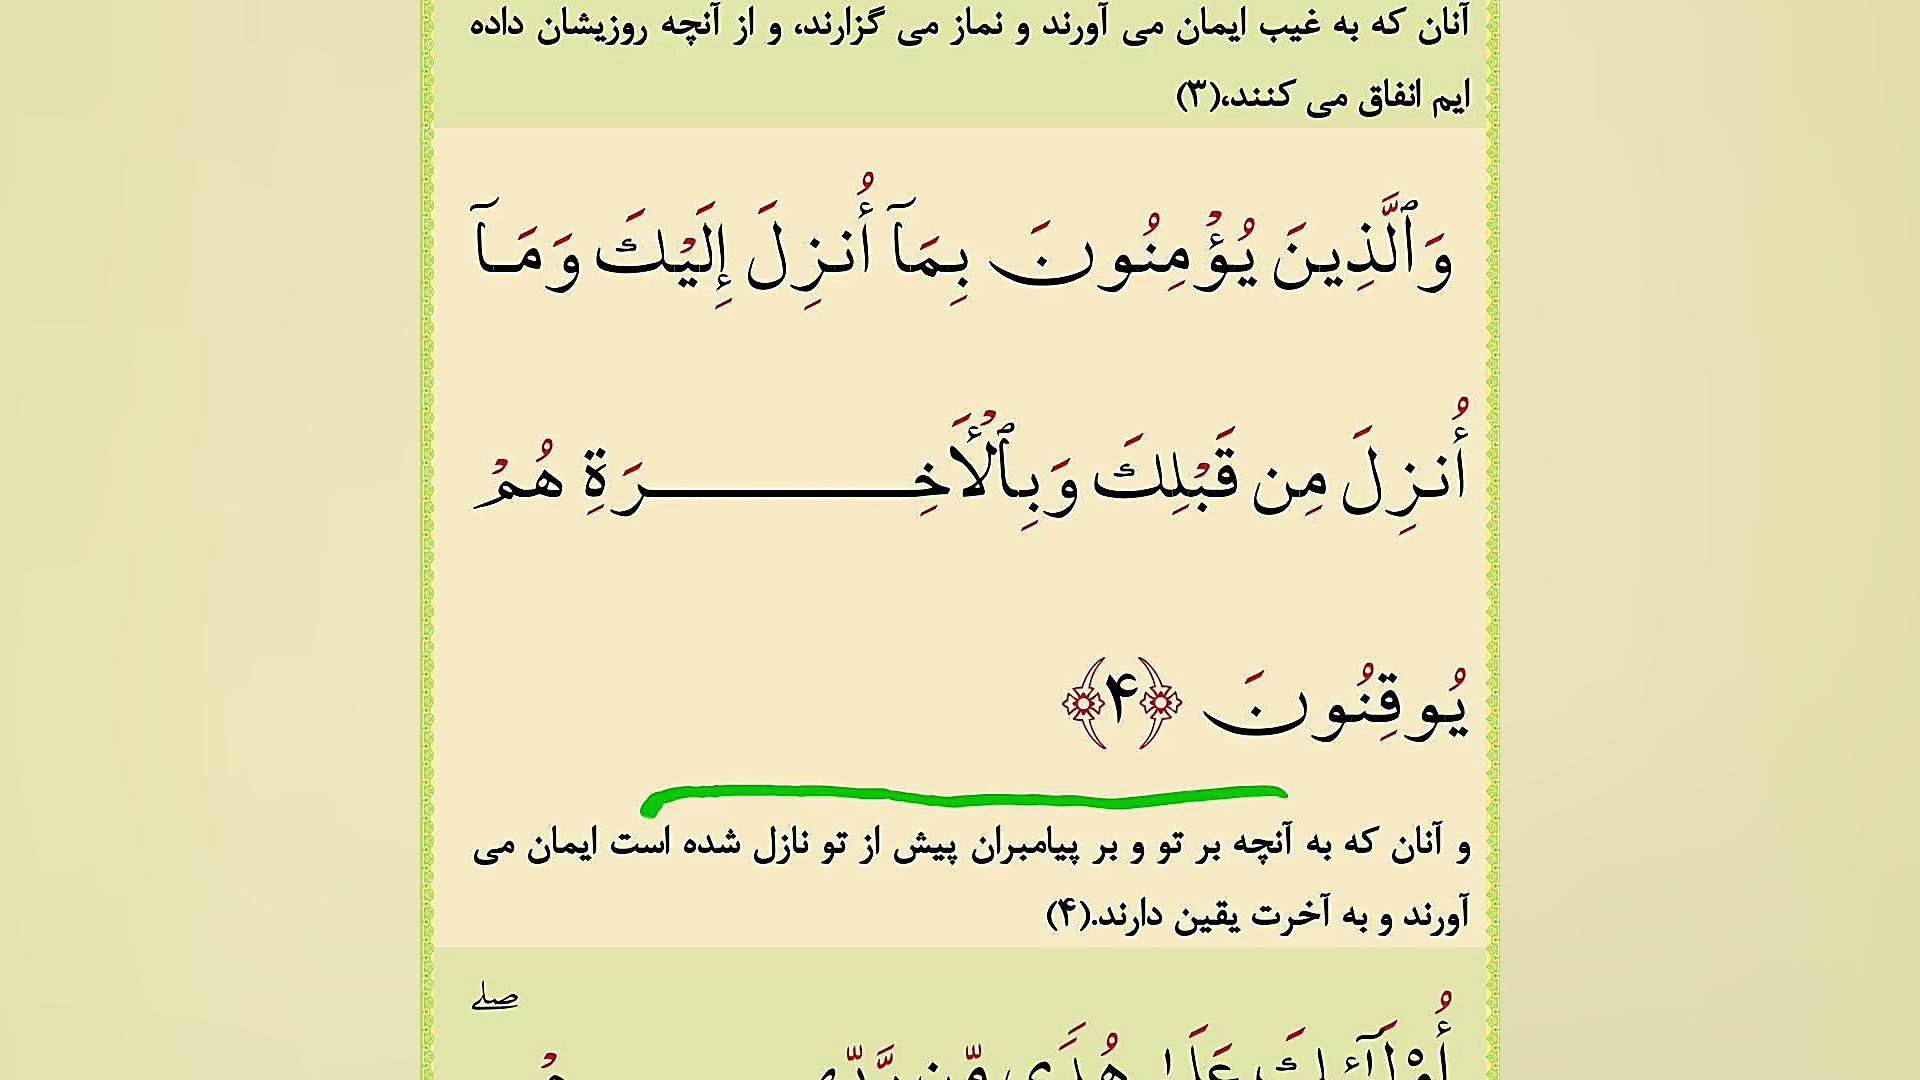 آنان که به غیب ایمان می آورند و نماز می گزارند، و از آنچه روزیشان داده
ایم انفاق می کنند،(۳)
وَٱلَّذِينَ يُؤْمِنُونَ بِمَآ أُنزِلَ إِلَيْكَ وَمَآ
أُنزِلَ مِن قَبْلِكَ وَبِٱلْأَخِرَةِ هُمْ
يُوقِنُونَ ﴿۴﴾
و آنان که به آنچه بر تو و بر پیامبران پیش از تو نازل شده است ایمان می
آورند و به آخرت یقین دارند.(۴)
صلے
أُوْلَـٰٓئِكَ عَلَىٰ هُدًى مِّن رَّبِّهِ